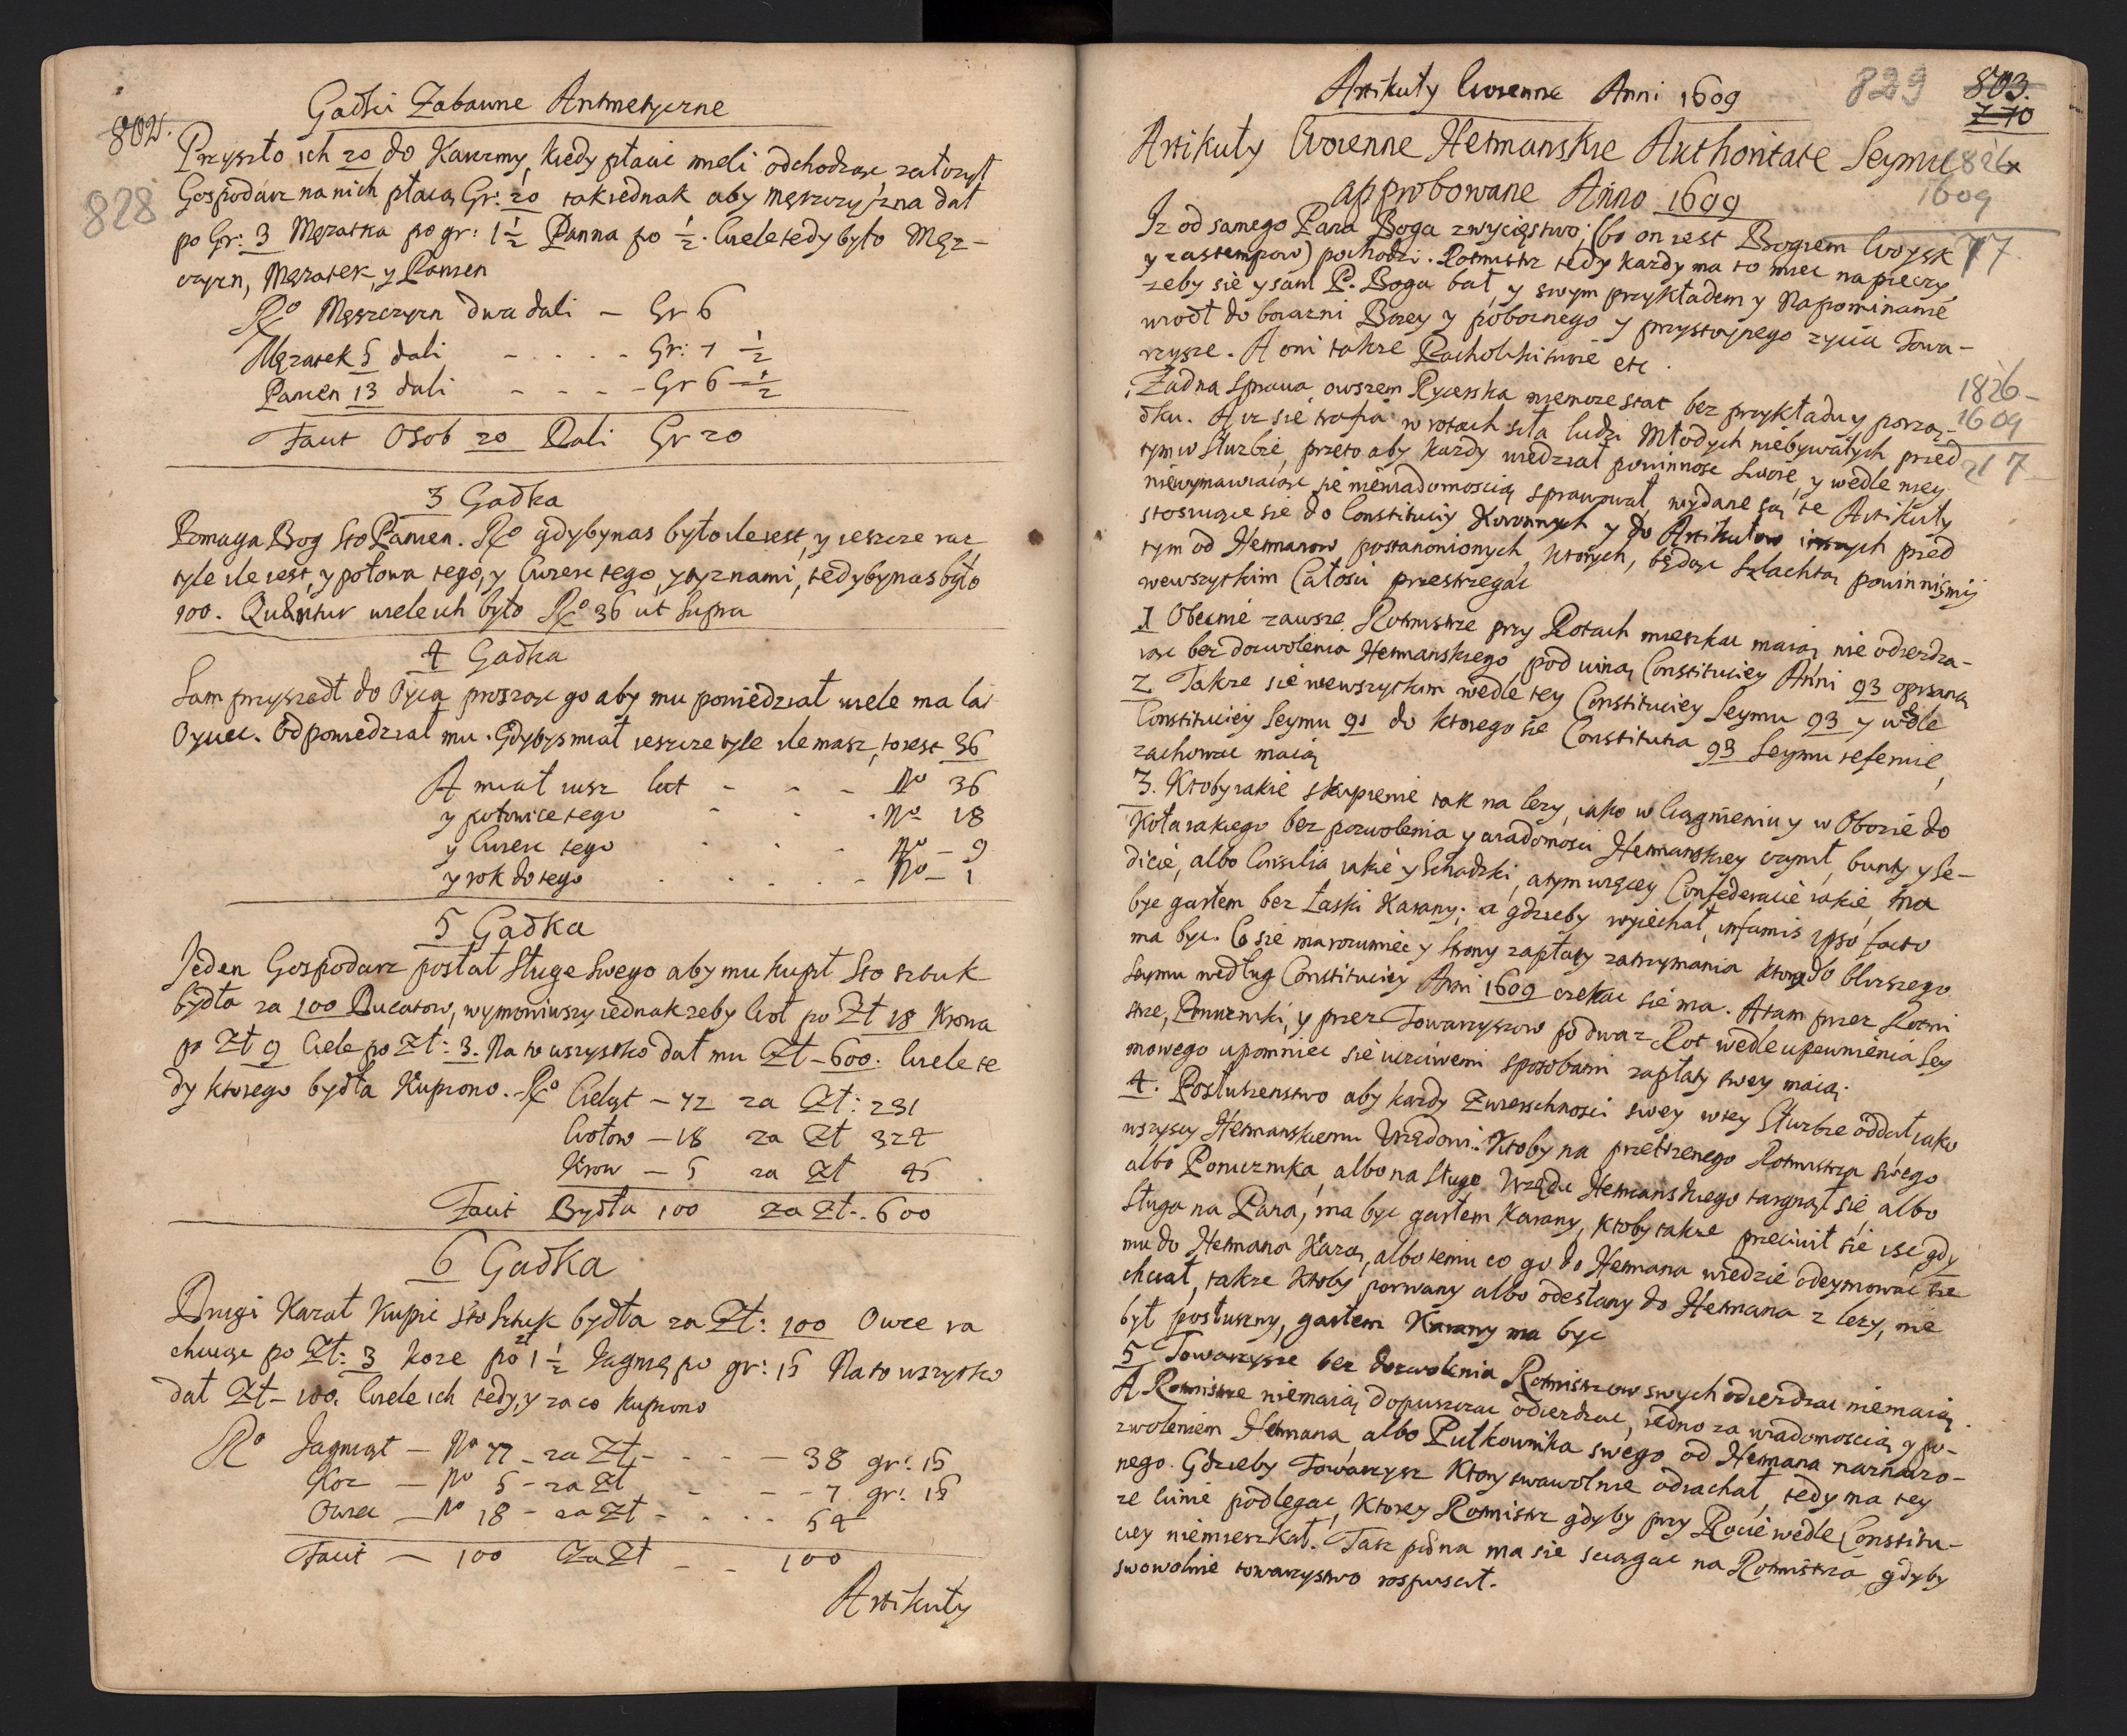 802.
828
Gadki Zabawne Aritmetyczne
Przyszło ich 20 do Karczmy, kiedy płacic mieli odchodząc załozył
Gospodarz na nich płacą Gr: 20 tak iednak aby męszczyzna dał
po Gr: 3 Męzatka po gr: 1 1/2 Panna po 1/2. Wiele tedy było Męz-
czyzn, Męzatek, y Panien
Ro Męszczyzn dwa dali - Gr 6
Męzatek 5 dali - - - - Gr: 7 1/2
Panien 13 dali - - - - Gr 6 - 1/2
Facit Osob 20 Dali Gr 20
3 Gadka
Pomaga Bog Sto Panien. Ro gdyby nas było ile iest, y ieszcze raz
tyle ile iest, y połowa tego, y cwierc tego, y ty z nami, tedyby nas było
100. Quæritur wiele ich było Ro 36 ut supra
4 Gadka
Sam przyszedł do Oyca prosząc go aby mu powiedział wiele ma lat
Oyciec. Odpowiedział mu. Gdybys miał ieszcze tyle ile masz, to iest 36
A miał iusz lat - - - No 36
y połowice tego - - . No 18
y cwierc tego . . . No - 9
y rok do tego . . . . - No - 1
5 Gadka
Jeden Gospodarz posłał Sługe swego aby mu kupił Sto sztuk
bydła za 100 Ducatow, wymowiwszy iednak zeby Woł po Zł 18 Krowa
po Zł 9 Ciele po Zł: 3. Na to wszystko dał mu Zł - 600. Wiele te
dy ktorego bydła Kupiono. Ro Cieląt - 77 za Zł: 231
Wołow - 18 za Zł 324
Krow - 5 za Zł 45
Facit Bydła 100 za Zł. 600
6 Gadka
Drugi Kazał Kupic Sto Sztuk bydła za Zł: 100 Owce ra
chuiąc po Zł: 3 koze po zł 1 1/2 Jagnię po gr: 15 Na to wszystko
dał Zł - 100. Wiele ich tedy, y za co kupiono
Ro Jagniąt - No 77 - za Zł - - - - 38 gr: 15
Koz - No 5 - za Zł - - - 7 gr: 15
Owiec - No 18 - za Zł - . . . 54
Facit - 100 Za Zł - - 100
Artikuły
Artikuły Woienne Anni 1609
829
803.
770
Artikuły Woienne Hetmanskie Authoritate Seymu
approbowane Anno 1609
1826
1609
Iz od samego Pana Boga zwycięstwo, (bo on iest Bogiem Woysk
y zastempow) pochodzi. Rotmistrz tedy kazdy ma to miec na pieczy,
zeby sie y sam P. Boga bał, y swym przykładem y Napominanie
wiodł do boiazni Bozey y poboznego y przystoynego zycia Towa-
rzysze. A oni takze Pacholikiwie etc.
Zadna Sprawa, owszem Rycerska niemoze stac bez przykładu y porzą-
dku. A iz sie trafia w rotach siła ludzi Młodych niebywałych przed
tym w Słuzbie, przeto aby kazdy wiedział powinnosc Swoie, y wedle niey
niewymawiaiąc sie niewiadomoscią sprawował, wydane są te Artikuły
stosuiące sie do Constituciy Koronnych y do Artikułow inszych przed
tym od Hetmanow postanowionych, ktorych, będąc Szlachtą powinnismy
wewszytkim Całosci przestrzegac
1826 -
1609
217
1 Obecnie zawsze Rotmistrze przy Rotach mieszkac maią nie odiezdza-
iąc bez dozwolenia Hetmanskiego pod winą Constituciey Anni 93 opisaną
2 Takze sie wewszytkim wedle tey Constituciey Seymu 93 y wedle
Constituciey Seymu 91 do ktorego sie Constitutia 93 Seymu referuie,
zachowac maią
3. Ktoby iakie skupienie tak na lezy, iako w Ciągnieniu y w Obozie do
Koła iakiego bez pozwolenia y wiadomosci Hetmanskiey czynił, bunty y Se-
dicie, albo Consilia iakie y Schadzki, a tym więcey Confederacie iakie, ma
byc garłem bez Łaski Karany; a gdzieby wyiechał, infamis ipso facto
ma byc. Co sie ma rozumiec y strony zapłaty zatrzymania ktorą do blizszego
Seymu według Constituciey Anni 1609 czekac sie ma. A tam przez Rotmi
strze, Porucznki, y przez Towarzyszow po dwu z Rot wedle upewnienia Sey
mowego upomniec sie ucziwemi sposobami zapłaty swey maią.
4. Posłuszenstwo aby kazdy Zwierzchnosci swey w tey Słuzbie oddał, iako
wszyscy Hetmanskiemu Urzędowi. Ktoby na przełozonego Rotmistrza swego
albo Porucznika, albo na Sługe Urzędu Hetmanskiego targnął sie, albo
Sługa na Pana, ma byc garłem Karany, ktoby takze przeciwił sie isc gdy
mu do Hetmana Kazą, albo temu co go do Hetmana wiedzie odeymowac sie
chciał, takze ktoby porwany albo odesłany do Hetmana z lezy, nie
był posłuszny, garłem Karany ma byc
5 Towarzysze bez dozwolenia Rotmistrzow swych odiezdzac niemaią.
A Rotmistrze niemaią dopuszczac odiezdzac, iedno za wiadomoscią y po-
zwoleniem Hetmana, albo Pułkownika swego od Hetmana naznaczo-
nego. Gdzieby Towarzysz ktory swawolnie odiachał, tedy ma tey
ze winie podlegac, ktorey Rotmistrz gdyby przy Rocie wedle Constitu-
ciey niemieszkał. Taz pæna ma sie sciągac na Rotmistrza gdyby
swowolnie towarzystwo rozpuscił.